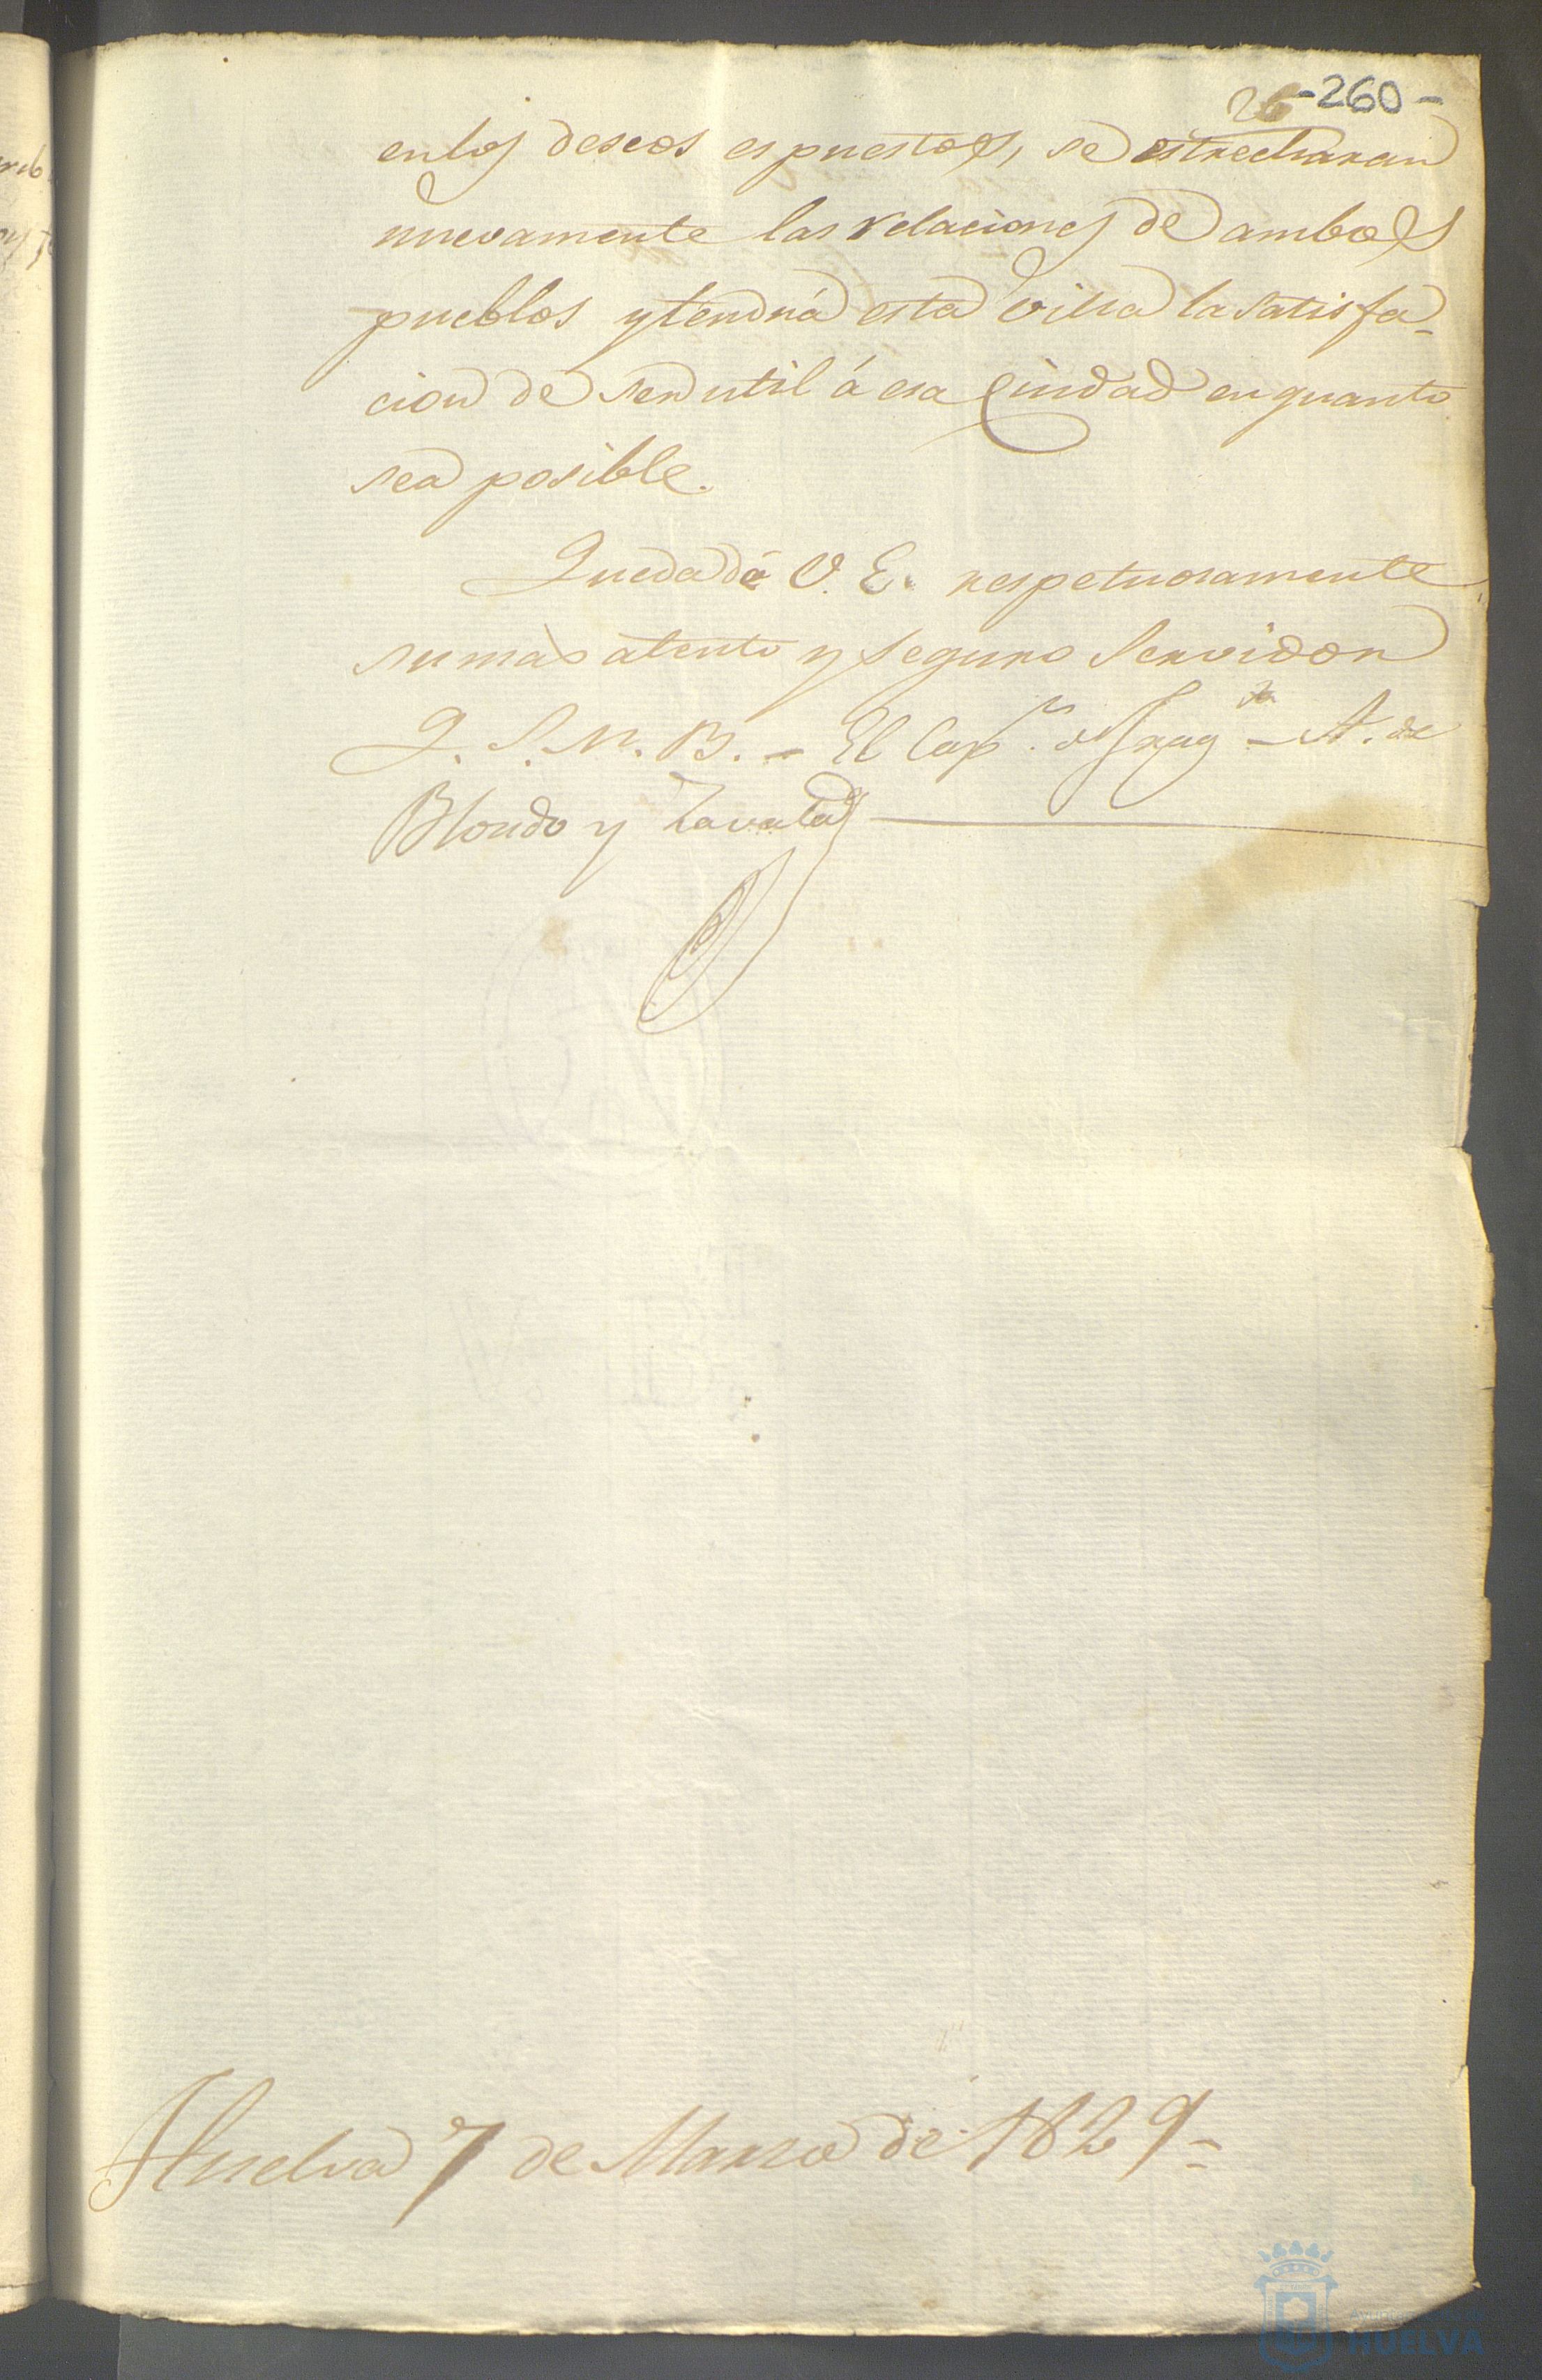 26 -260-
en los deseos espuestos, se estrecharan
nuevamente las relaciones de ambos
pueblos y tendrá esta villa la satisfa-
cion de ser util á esa Ciudad en quanto
sea posible.
Queda dé V. E. respetuosamente
su más atento y seguro Servidor
Q. S. M. B. - El Cap.n de Frag.ta - A. de
Blondo y Zavala
Huelva 7 de Marzo de 1829-
HUELVA